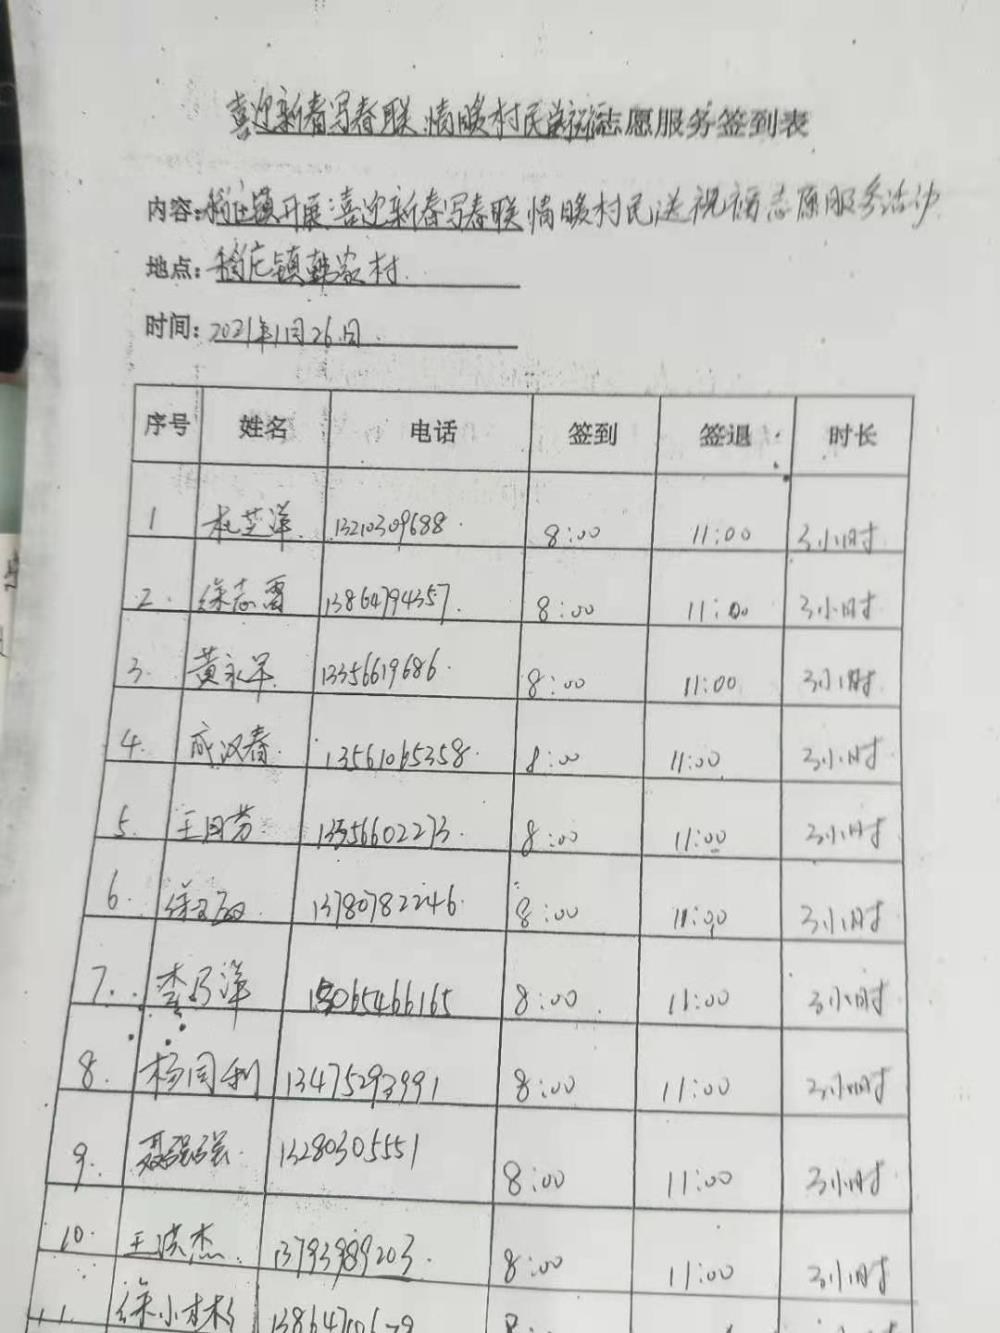 喜迎新春写春联 情暖村民送祝福志愿服务签到表
内容:稻庄镇开展喜迎新春写春联 情暖村民送祝福志愿服务活动
地点:稻庄镇韩家村
时间:2021年1月26日
序号 姓名 电话 签到 签退 时长
1 杜芝洋 13210309688 8:00 11:00 3小时
2. 徐志 13864794357. 8:00 11:00 3小时
3. 黄永军 13356619686. 8:00 11:00 3小时
4. 成汉春. 13561065358. 8:00 11:00 3小时
5. 王月芳 13356602273. 8:00 11:00 3小时
6. 徐 13780782246. 8:00 11:00 3小时
7. 李乃洋 15065466165 8:00 11:00 3小时
8. 杨同利 13475292991 8:00 11:00 3小时
9. 聂强强. 13280305551 8:00 11:00 3小时
10. 王洪杰. 13793989203. 8:00 11:00 3小时
11. 徐小林